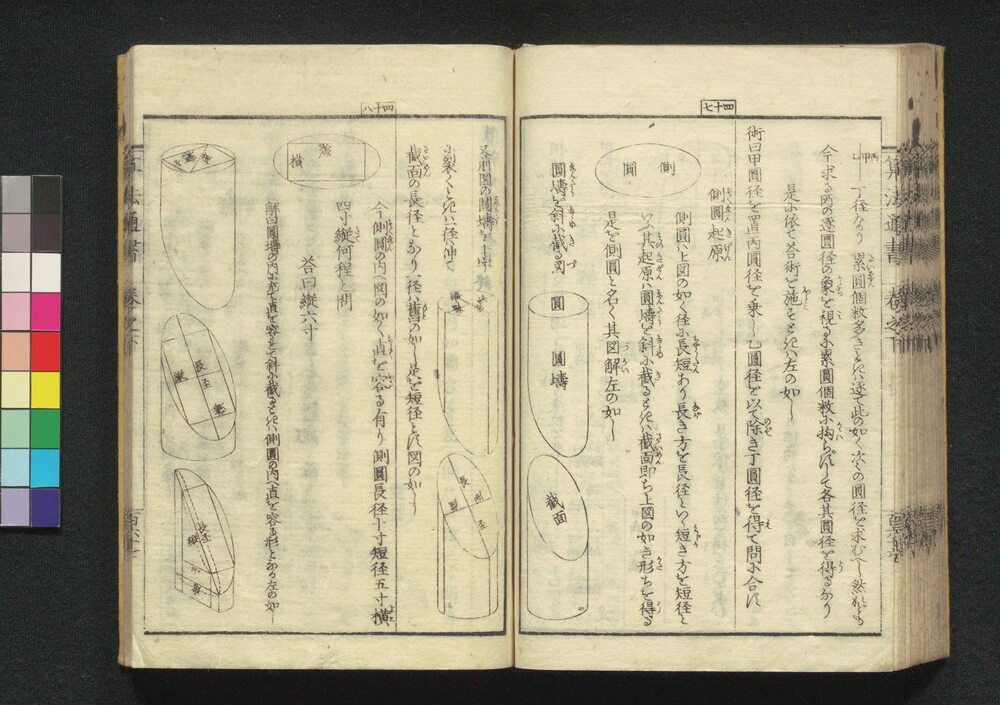 四十七
丁径なり累圓個数多きときハ逐て此の如く次々の圓径を求むべし然れども
今求る丙の逐圓径の象を視るに累圓個数に拘らずして各其圓径を得るなり
是に依て答術を施すときハ左の如し
術曰甲圓径を置丙圓径を乗し乙圓径を以て除き丁圓径を得て問に合す
側圓起原
側圓
側圓ハ上図の如く径に長短あり長き方を長径といひ短き方を短径と
いふ其起原ハ圓壔を斜に截るときハ截面即ち上図の如き形ちを得る
是を側圓と名く其図解左の如し
圓壔を斜に截る図
圓
圓壔
截面
四十八
又前図の圓壔を十字
に裂くときハ径伸て
截面の長径となり一径ハ舊の如し是を短径とす図の如し
今側圓の内へ図の如く直を容る有り側圓長径十寸短径五寸横
四寸縦何程と問
答曰縦六寸
縦
横
解曰圓壔の内に充て直を容れて斜に截るときハ側圓の内へ直を容る形となる左の如し
長径
長径
算法通書
巻之下